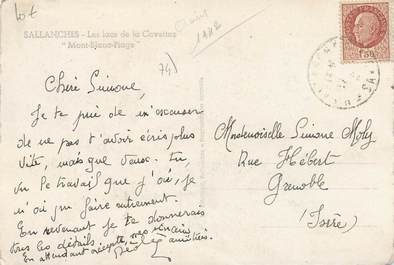 lot
1942
SALLANCHES - Les lacs de la Cavettaz
"Mont-Blanc-Plage"
74)
Chère Simone,
Je te prie de m'excuser
de ne pas t'avoir écris plus
vite, mais que veux-tu,
le travail que j'ai, je
n'ai pu faire autrement.
En revenant je te donnerais
tous les détails.
En attendant accepte mes sincères
amitiés.
Mademoiselle Simone Moly
Rue Hébert
Grenoble
(Isère)
1F50